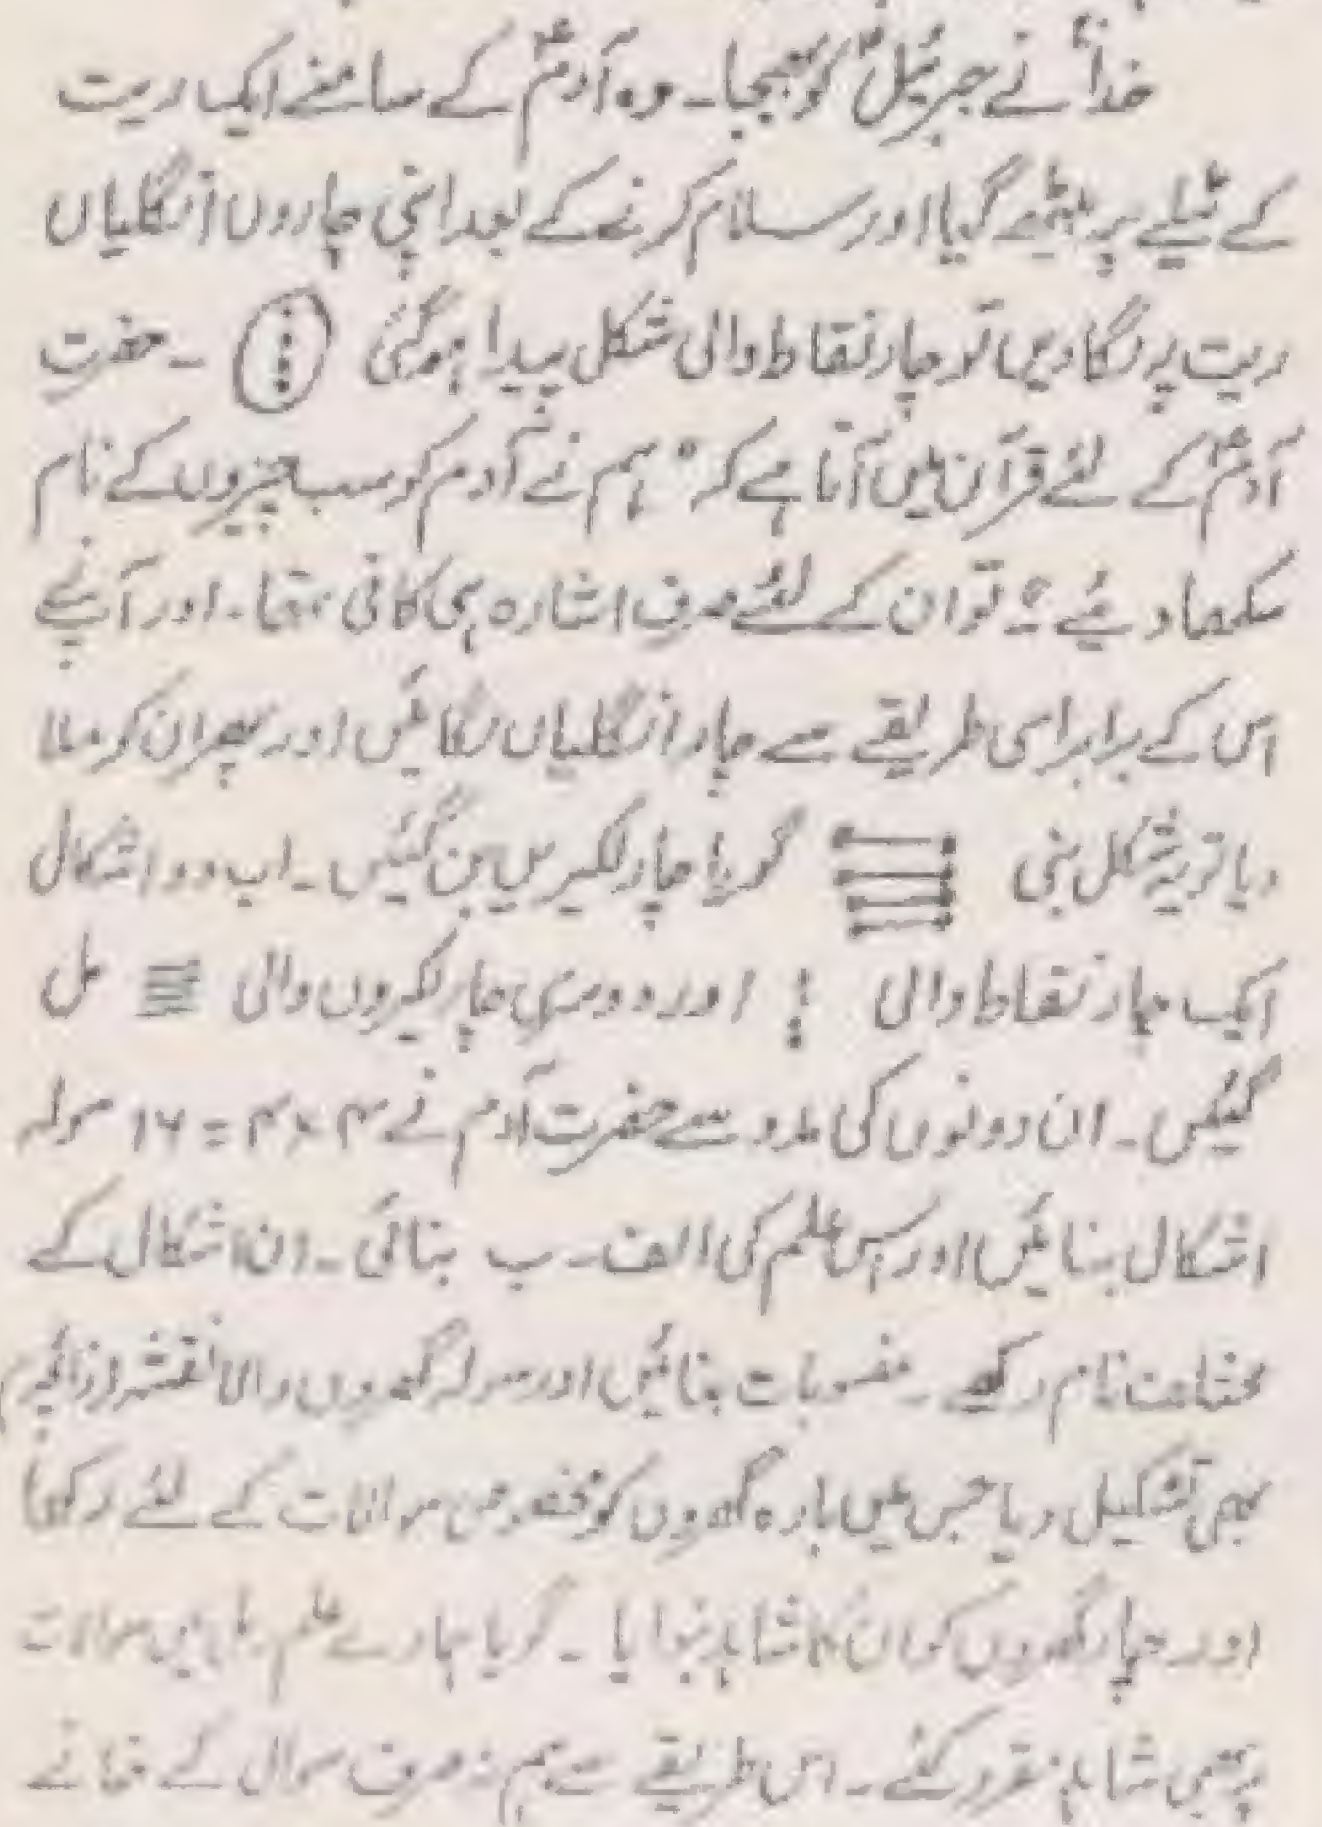 خدا نے جبرئیلؑ کو بھیجا۔ وہ آدمؑ کے سامنے ایک ریت
کے ٹیلے پر بیٹھ گیا اور سلام کرنے کے بعد اپنی چاروں انگلیاں
ریت پر لگا دیں تو چار نقاط والی شکل پیدا ہوگئی ⁞ ۔ حضرت
آدمؑ کے لئے قرآن میں آتا ہے کہ "ہم نے آدم کو سب چیزوں کے نام
سکھا دیئے" تو ان کے لئے صرف اشارہ ہی کافی تھا۔ اور آپ نے
اس کے برابر اسی طریقے سے چار انگلیاں لگائیں اور پھر ان کو ملا
دیا تو یہ شکل بنی گویا چار لکیریں بن گئیں۔ اب دو اشکال
ایک چار نقاط والی ⁞ اور دوسری چار لکیروں والی مل
گئیں۔ ان دونوں کی مدد سے حضرت آدم نے ۴×۴ = ۱۶ سولہ
اشکال بنائیں اور اس علم کی الف۔ ب بنائی۔ ان اشکال کے
مختلف نام رکھے۔ منسوبات بنائیں اور سولہ گھروں والا نقشہ (زائچہ)
بھی تشکیل دیا جس میں بارہ گھروں کو مخصوص سوالات کے لئے رکھا
اور چار گھروں کو ان کا شاہد بنوایا۔ گویا ہمارے علم رمل میں سوالات
پر بھی شاہد مقرر کئے۔ اس طریقے سے ہم نہ صرف سوال کے خانے